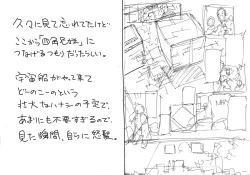 久々に見て忘れてたけど…
ここから「四角兄妹」に
つなげるつもりだったらしい。
宇宙船がやって来て
どーのこーのという
壮大なハナシの予定で、
あまりにも不要すぎるので、
見た瞬間、自らに怒髪。